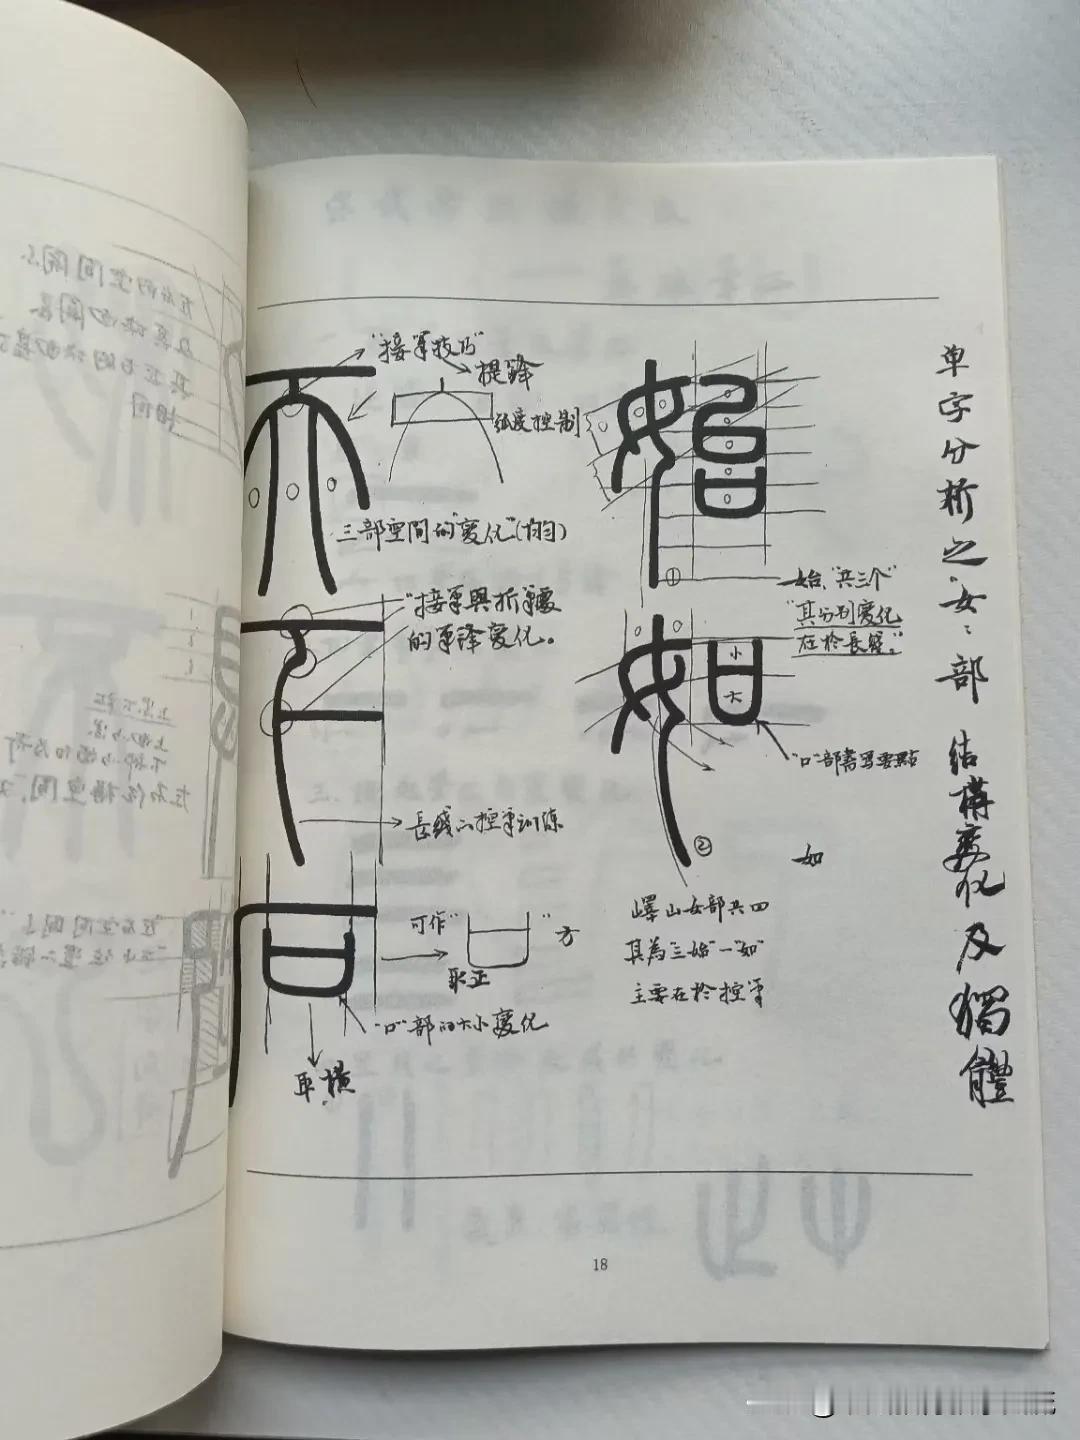 单字分析之"女"部结構變化及獨體
"接筆技巧"
提鋒
弧度控制
三部空間的"變化"(均匀)
"接筆與折筆處
的筆鋒變化。
長綫的控筆訓练
可作" "方
取正
"口"部的大小變化
平横
①
始,"共三个"
"其分别變化
在於長竪。"
小
大
"口"部書寫要點
②
如
嶧山女部共四
其為"三始"一"如"
主要在於控筆
18
左右的空間開
相同